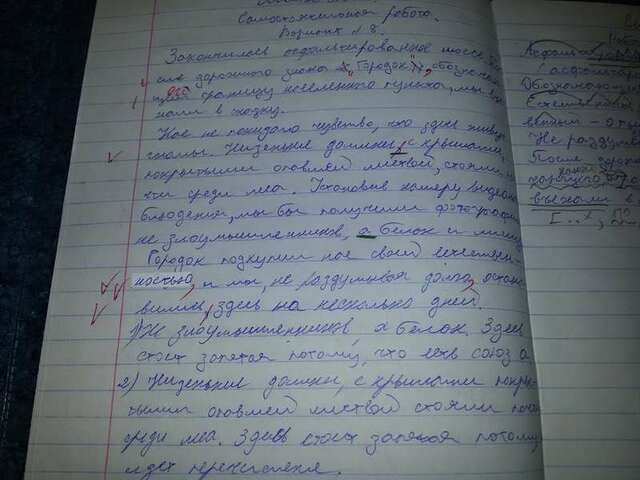 Самостоятельная работа.
Вариант № 8.
Закончилось асфальтированное шоссе. По
сле дорожного знака "Городок", обознач
границу населенного пункта, мы въе
хали в сказку.
Нас не покидало чувство, что здесь живут
гномы. Низенькие домики, с крышами,
покрытыми опавшей листвой, стояли по
чти среди леса. Установив камеру видеона
блюдения, мы бы получили фотографии
не злоумышленников, а белок и
Городок подкупил нас своей естествен
ностью, и мы, не раздумывая долго, остано
вились здесь на несколько дней.
1) Не злоумышленников, а белок. Здесь
стоит запятая потому, что есть союз а
2) Низенькие домики, с крышами покры
тыми опавшей листвой стояли почти
среди леса. Здесь стоит запятая потому
идёт перечисление.
Асфальтиров
асфальтир
Обозначающ
Естествен
Не раздумы
После дорож
въехали в